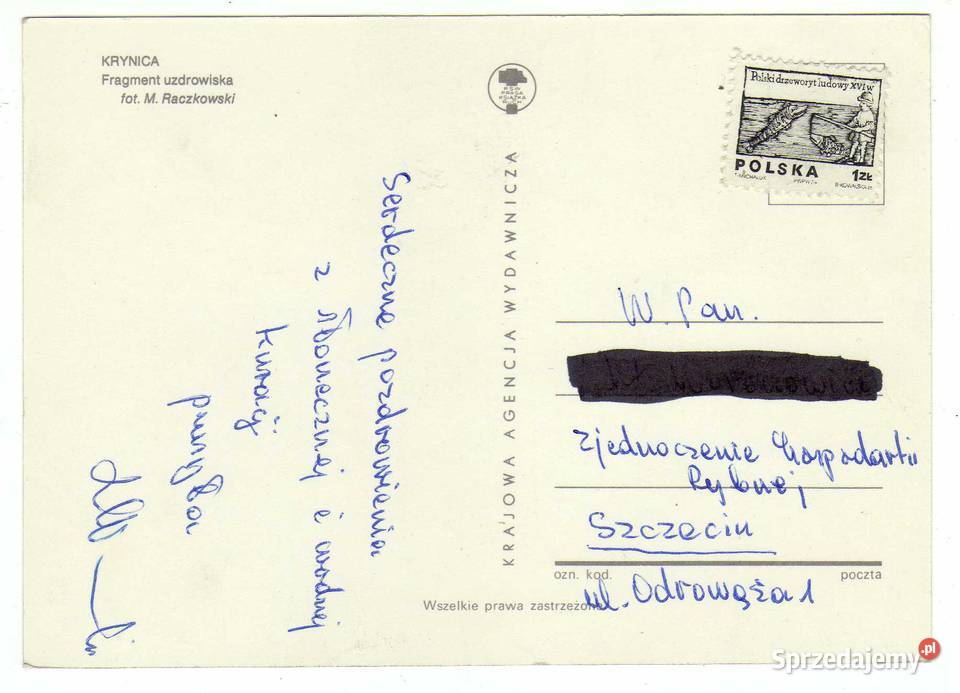 KRYNICA
Fragment uzdrowiska
fot. M. Raczkowski
PSW
PRASA
KSIĄŻKA
RUCH
Polski drzeworyt ludowy XVI w
POLSKA 1ZŁ
KRAJOWA AGENCJA WYDAWNICZA
Serdeczne pozdrowienia
z słonecznej i wodnej
kuracji
W. Pan.
Zjednoczenie Gospodarki
Rybnej
Szczecin
ozn. kod. poczta
ul. Odrowąża 1
Wszelkie prawa zastrzeżone
Sprzedajemy.pl